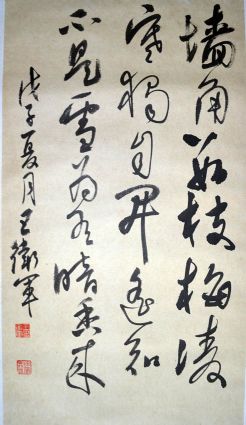 墙角数枝梅凌
寒独自开遥知
不是雪为有暗香来
戊子夏月王军